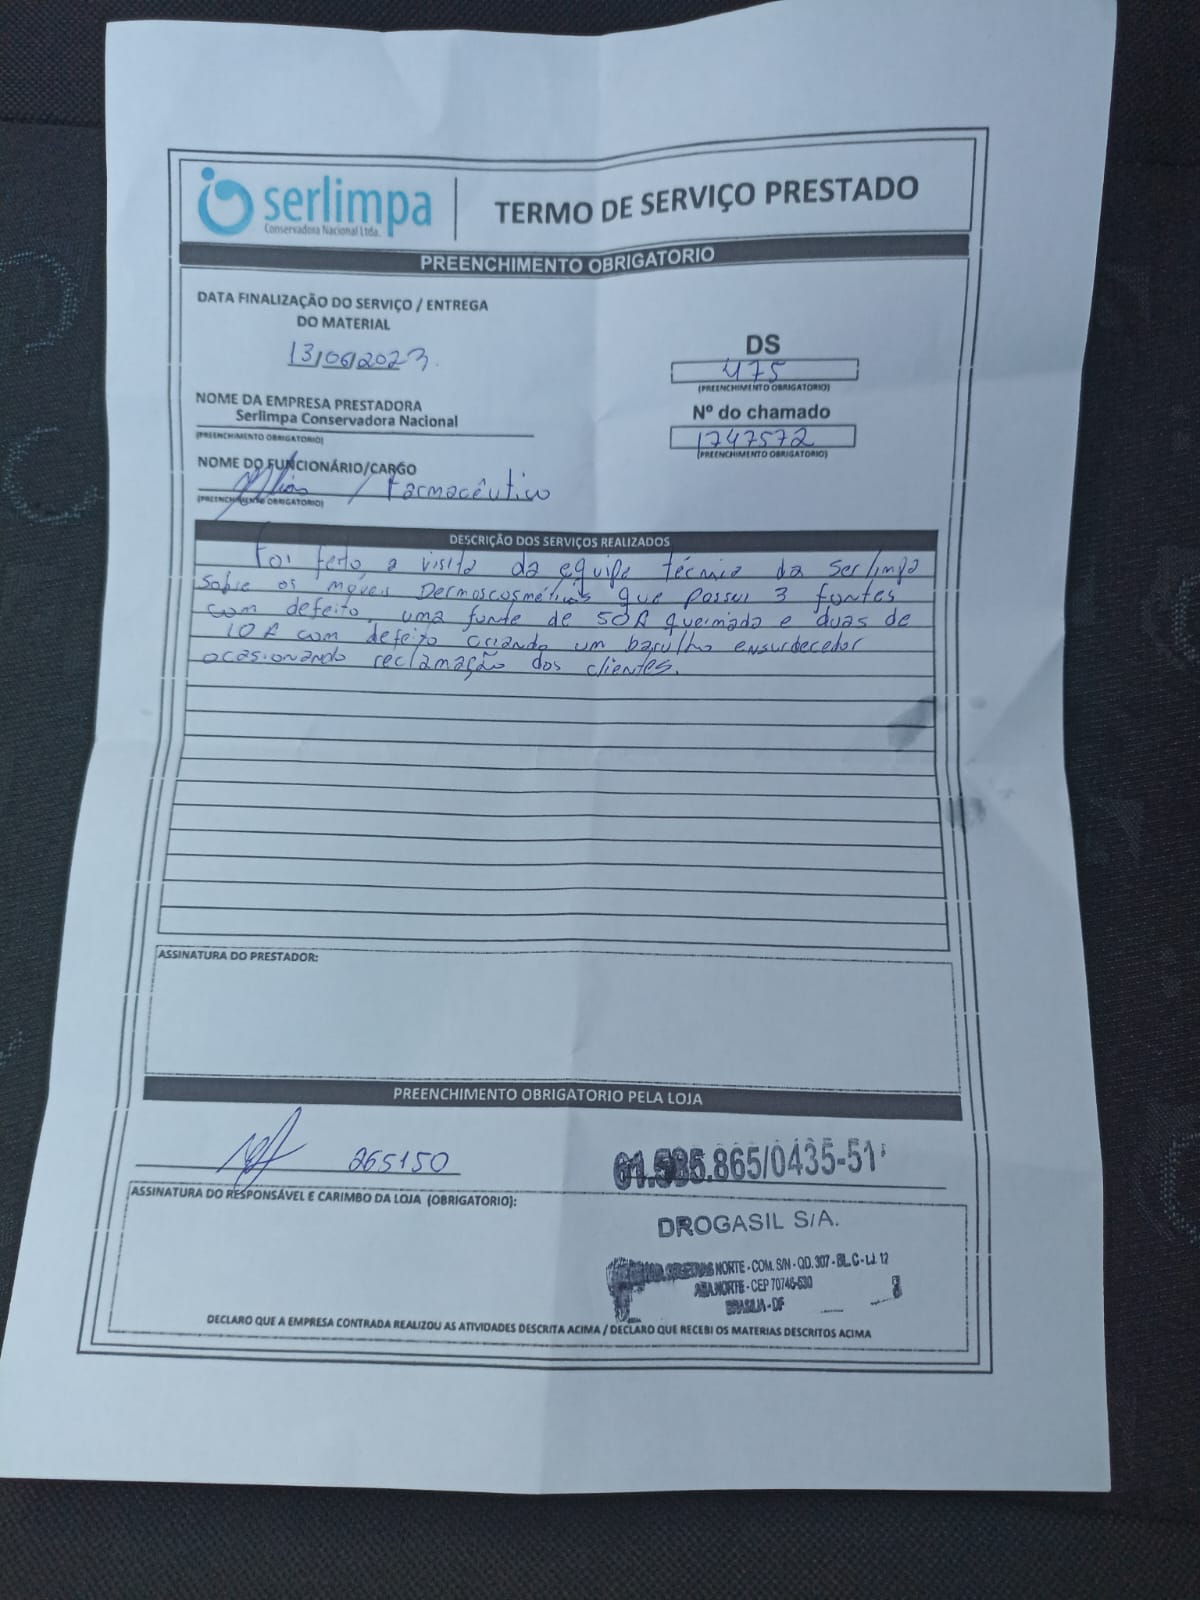 serlimpa
Conservadora Nacional Ltda.
TERMO DE SERVIÇO PRESTADO
PREENCHIMENTO OBRIGATORIO
DATA FINALIZAÇÃO DO SERVIÇO / ENTREGA
DO MATERIAL
13/06/2023.
DS
475
(PREENCHIMENTO OBRIGATORIO)
NOME DA EMPRESA PRESTADORA
Serlimpa Conservadora Nacional
(PREENCHIMENTO OBRIGATORIO)
Nº do chamado
1747572
(PREENCHIMENTO OBRIGATORIO)
NOME DO FUNCIONÁRIO/CARGO
/ Farmacêutico
(PREENCHIMENTO OBRIGATORIO)
DESCRIÇÃO DOS SERVIÇOS REALIZADOS
Foi feito, a visita da equipe técnia da Serlimpa
sobre os móveis Dermoscosméticos que possui 3 fontes
com defeito, uma fonte de 50A queimada e duas de
10A com defeito criando um barulho ensurdecedor
ocasionando reclamação dos clientes.
ASSINATURA DO PRESTADOR:
PREENCHIMENTO OBRIGATORIO PELA LOJA
265150
61.585.865/0435-51
ASSINATURA DO RESPONSÁVEL E CARIMBO DA LOJA (OBRIGATORIO):
DROGASIL S/A.
NORTE - COM. S/N - QD. 307 - BL. C - LJ. 12
ASA NORTE - CEP 70746-530
BRASILIA - DF
DECLARO QUE A EMPRESA CONTRADA REALIZOU AS ATIVIDADES DESCRITA ACIMA / DECLARO QUE RECEBI OS MATERIAS DESCRITOS ACIMA